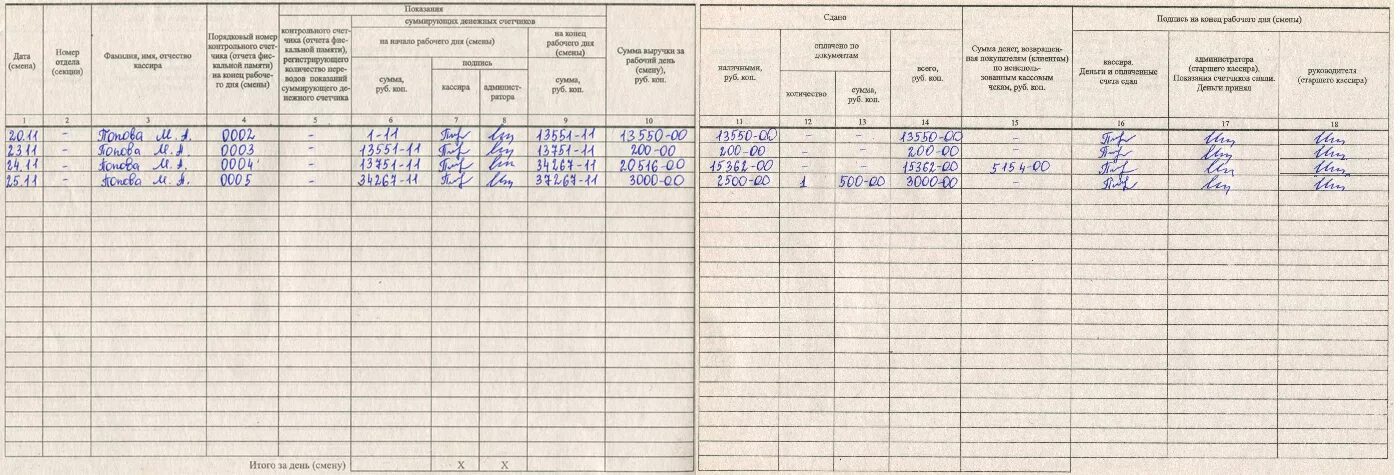 Дата (смена)
Номер отдела (секции)
Фамилия, имя, отчество кассира
Порядковый номер контрольного счетчика (отчета фискальной памяти) на конец рабочего дня (смены)
Показания
контрольного счетчика (отчета фискальной памяти), регистрирующего количество переводов показаний суммирующего денежного счетчика
суммирующих денежных счетчиков
на начало рабочего дня (смены)
на конец рабочего дня (смены)
сумма, руб. коп.
подпись
кассира
администратора
сумма, руб. коп.
Сумма выручки за рабочий день (смену), руб. коп.
Сдано
наличными, руб. коп.
оплачено по документам
количество
сумма, руб. коп.
всего, руб. коп.
Сумма денег, возвращенная покупателям (клиентам) по неиспользованным кассовым чекам, руб. коп.
Подпись на конец рабочего дня (смены)
кассира. Деньги и оплаченные счета сдал
администратора (старшего кассира). Показания счетчиков снял. Деньги принял
руководителя (старшего кассира)
1 2 3 4 5 6 7 8 9 10 11 12 13 14 15 16 17 18
20.11 - Попова М.А. 0002 - 1-11 13551-11 13550-00 13550-00 - - 13550-00 -
23.11 - Попова М.А. 0003 - 13551-11 13751-11 200-00 200-00 - - 200-00 -
24.11 - Попова М.А. 0004 - 13751-11 34267-11 20516-00 15362-00 - - 15362-00 5154-00
25.11 - Попова М.А. 0005 - 34267-11 37267-11 3000-00 2500-00 1 500-00 3000-00 -
Итого за день (смену) X X